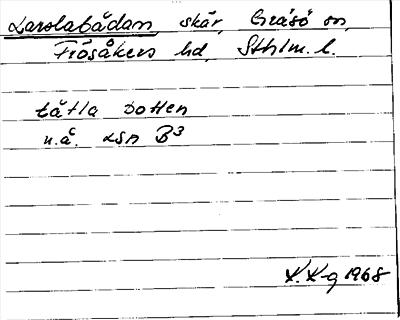 Larslabådan, skär, Gräsö sn,
Frösåkers hd, Sthlm. l.
tätla Dotten
u.å. LSA B3
K. K-g 1968